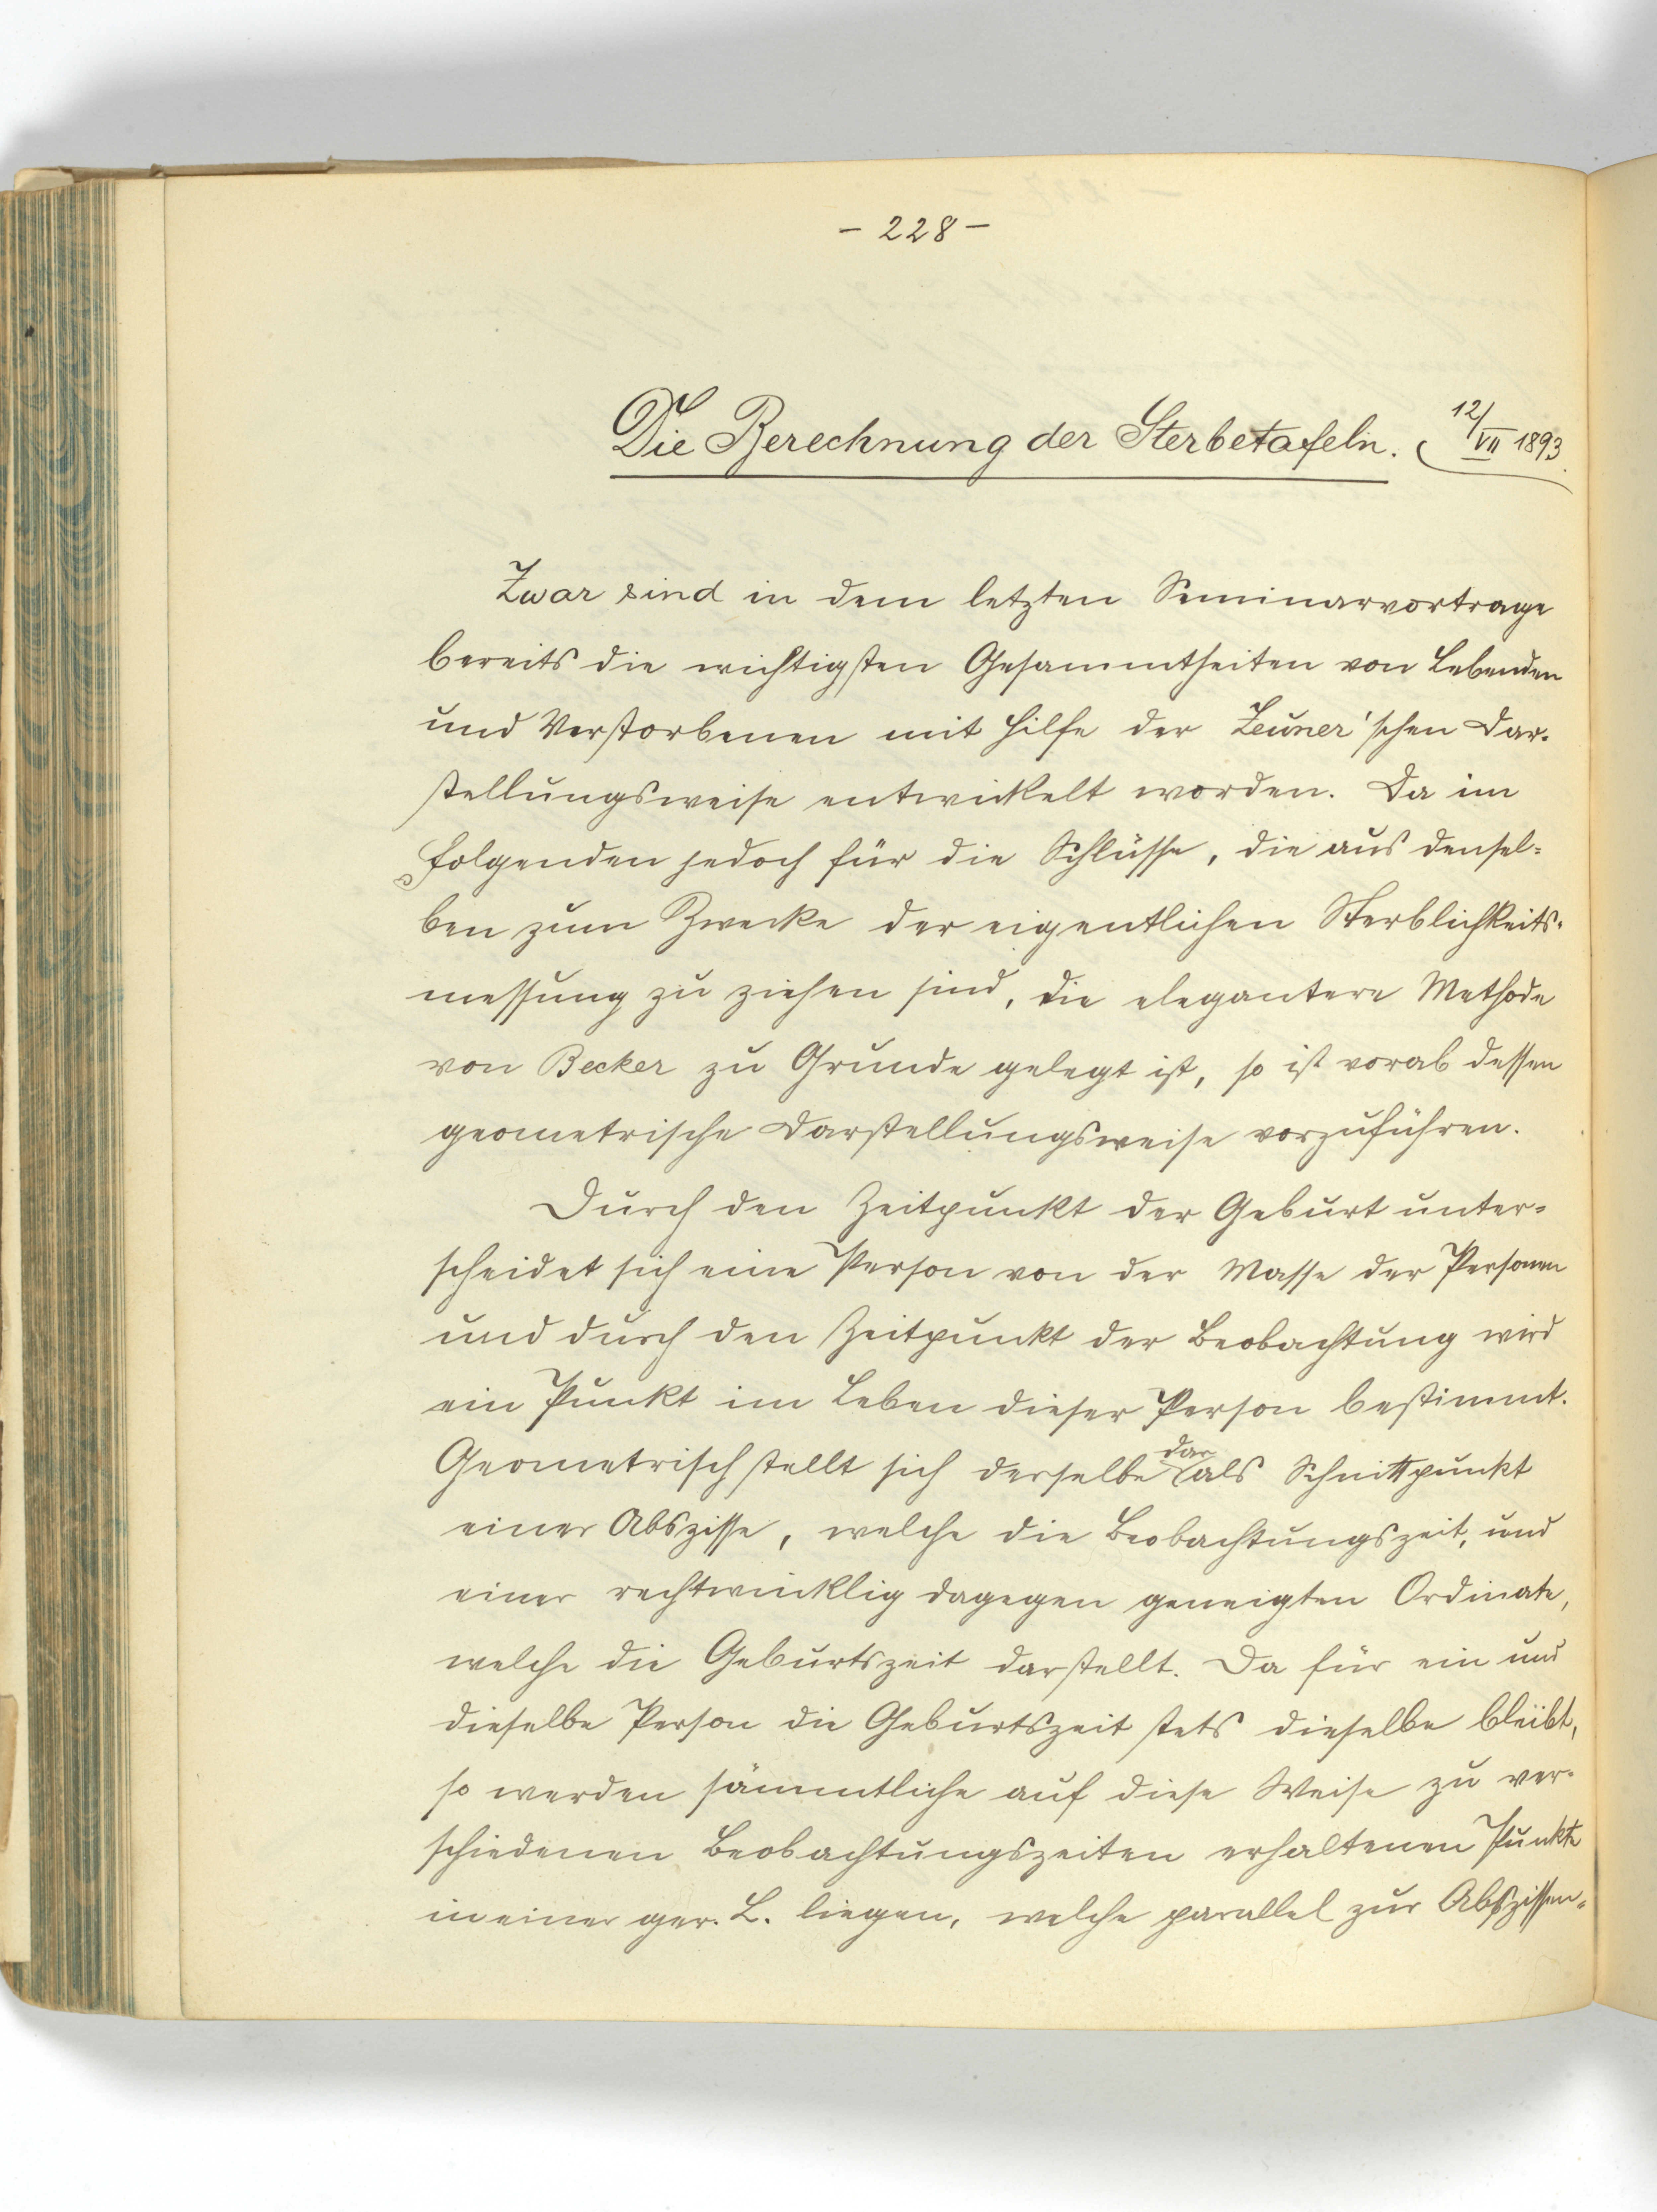 - 228 -
Die Berechnung der Sterbetafeln. (12/VII 1893.
Zwar sind in dem letzten Seminarvortrage
bereits die wichtigsten Gesammtheiten von Lebenden
und Verstorbenen mit Hilfe der Zeuner'schen Dar-
stellungsweise entwickelt worden. Da im
folgenden jedoch für die Schlüsse, die aus densel-
ben zum Zwecke der eigentlichen Sterblichkeits-
messung zu ziehen sind, die elegantere Methode
von Becker zu Grunde gelegt ist, so ist vorab dessen
geometrische Darstellungsweise vorzuführen.
Durch den Zeitpunkt der Geburt unter-
scheidet sich eine Person von der Masse der Personen
und durch den Zeitpunkt der Beobachtung wird
ein Punkt im Leben dieser Person bestimmt.
Geometrisch stellt sich derselbe dar als Schnittpunkt
einer Abszisse, welche die Beobachtungszeit, und
einer rechtwincklig dagegen geneigten Ordinate,
welche die Geburtszeit darstellt. Da für ein und
dieselbe Person die Geburtszeit stets dieselbe bleibt,
so werden sämmtliche auf diese Weise zu ver-
schiedenen Beobachtungszeiten erhaltenen Punkte
in einer ger. L. liegen, welche parallel zur Abszissen-